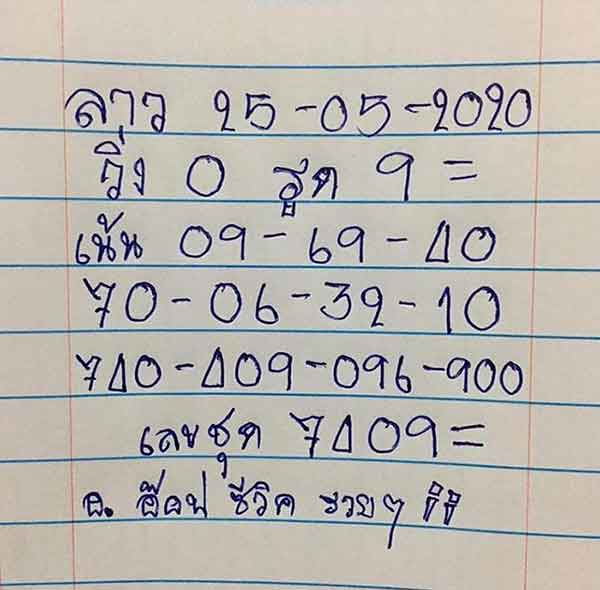 ลาว 25-05-2020
วิ่ง 0 รูด 9 =
เน้น 09-69-40
70-06-32-10
740-409-096-900
เลขชุด 7409=
อ. อ๊อป ชีวิค รวยๆ